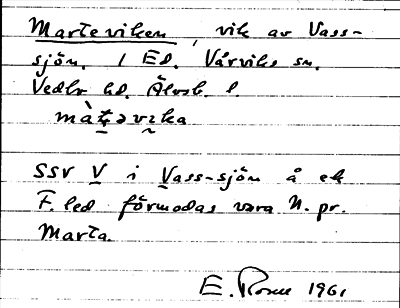 Marteviken, vik av Vass-
sjön. / Ed. Vårviks sn.
Vedbo hd. Älvsb. l
màṭəvika
SSV V i Vass-sjön å ek
F. led förmodas vara N. pr.
Marta.
E. Rosell 1961